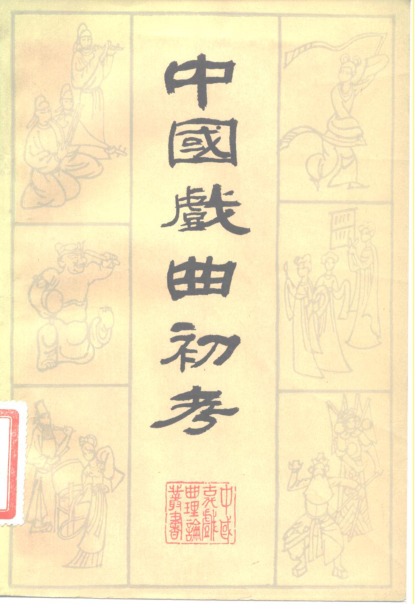 中國戲曲初考
中國
戲
曲理論
叢書